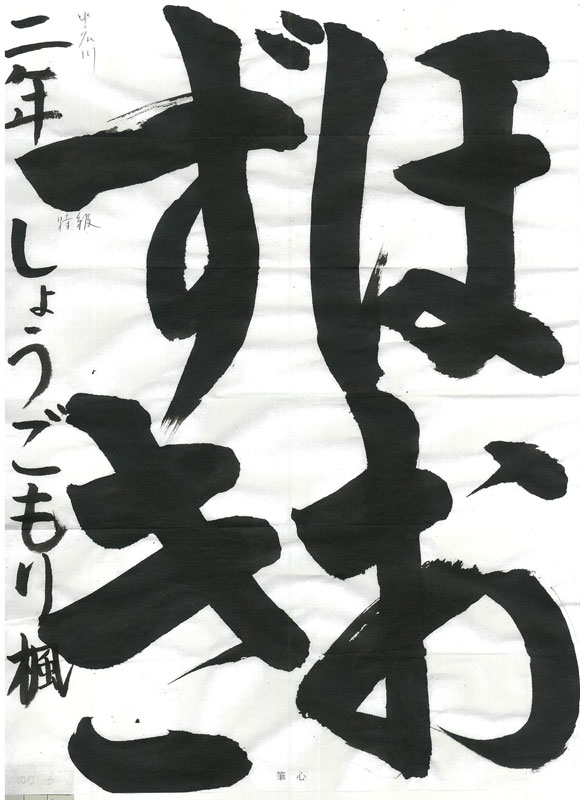 ほお
ずき
二年 しょうごもり 楓
特級
筆心